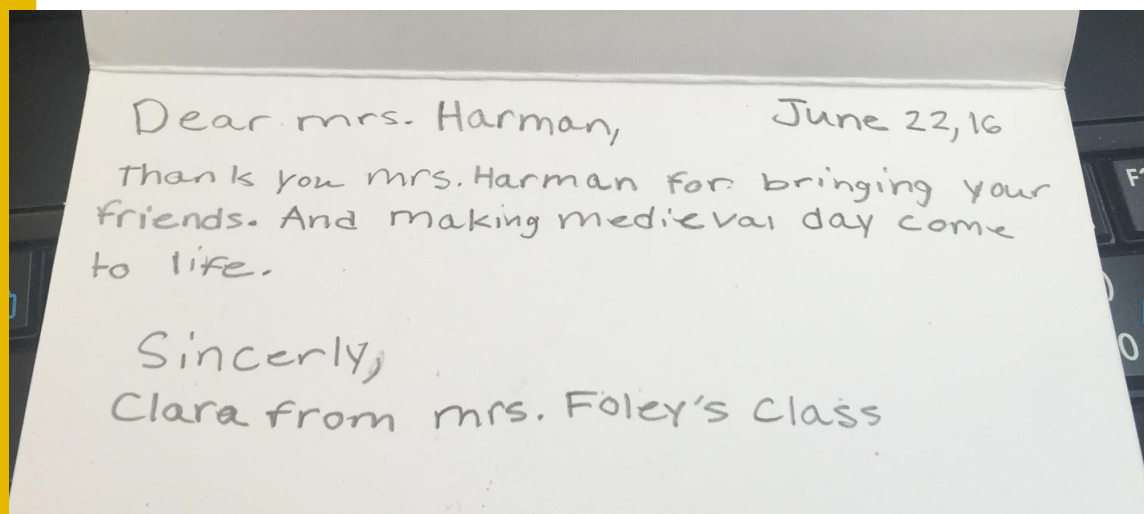 Dear mrs. Harman, June 22, 16
Thank you mrs. Harman for bringing your
friends. And making medieval day come
to life.
Sincerly,
Clara from mrs. Foley's Class